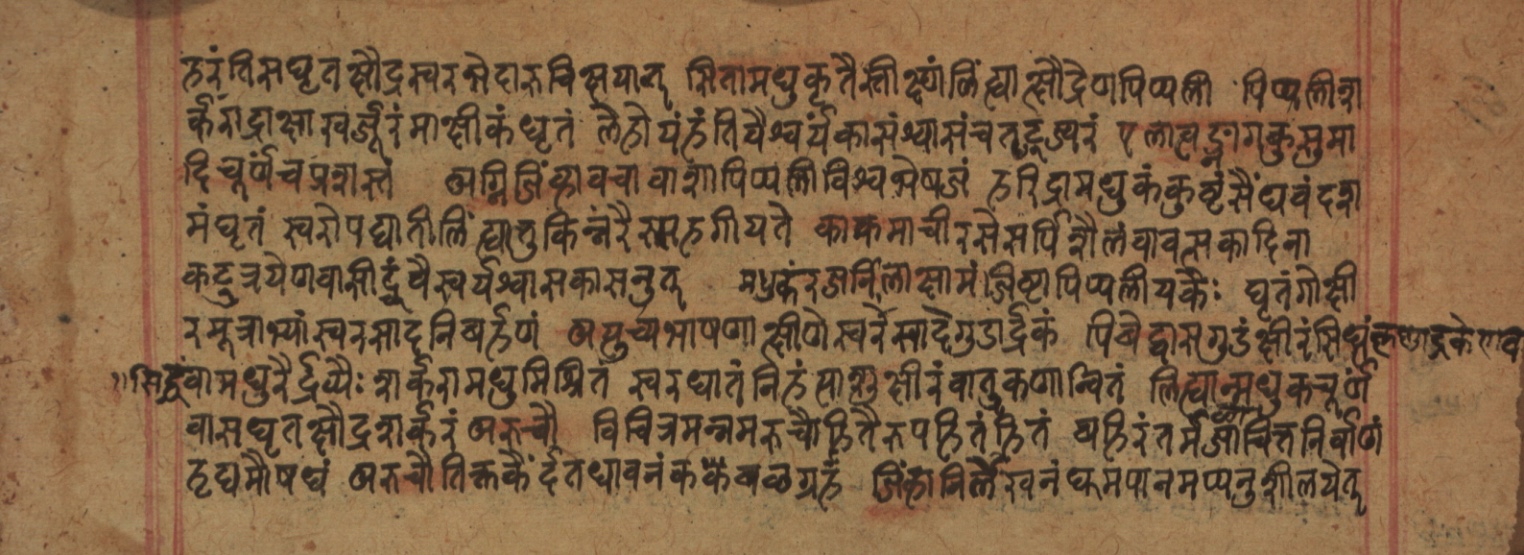 हरंतिसघृतक्षौद्रस्वरभेदारुचिक्षयान् सितामधुकृतैस्तीक्ष्णंलिंह्यात्क्षौद्रेणपिप्पली पिप्पलीशा
र्करांद्राक्षाखर्जूरंमाक्षीकंघृतं लेहोयंहंतिवैश्वर्यंकासंश्वासंचतद्ज्वरं एलात्वङ्नागकुसुमा
दिचूर्णंचप्रशस्तं अग्निजिंह्वावचावांशापिप्पलीविश्वभेषजं हरिद्रामधुकंकुष्टंसैंधवंदशा
मंघृतं स्वरोपघातीलिंह्यात्तुकिंन्नरैस्सहगीयते काकमाचीरसेसर्पि वावत्सकादिना
कटुत्रयेणवासीद्धंवैस्वर्यश्वासकासनुत् मधुकंरजनीलाक्षामंजिष्टापिप्पलीयकैः घृतंगोक्षी
रमूत्राभ्यांस्वरसादनिबर्हणं अत्युच्यभाषणाक्षीणेस्वरेस्वादेगुडार्द्रकं पिबेद्वासगुडंक्षीरं
सिद्धंवामधुरैर्द्रव्यैः शार्करामधुमिश्रितं स्वरघातंनिहंत्याशुक्षीरंवातुकणान्वितं लिह्यान्मधुकचूर्णं
वासघृतक्षौद्रशार्करं अरुचौ विचित्रमन्नमरुचौहितैरुपहितंहितं बहिरंतर्मृजाचित्तनिर्वाणं
हृद्यमौषधं अरुचौतिक्तकैर्दंतधावनंककैवळग्रहं जिंह्वानिर्लेखनंधूमपानमप्यनुशीलयेत्